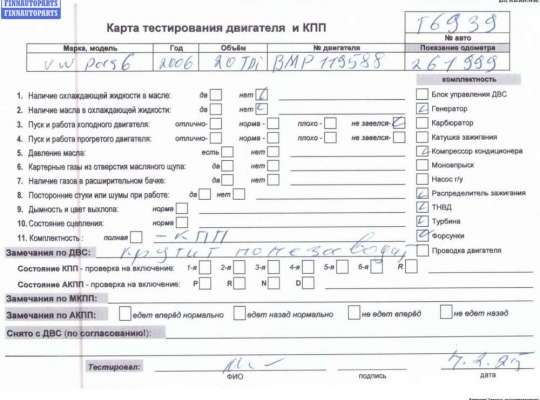 FINNAUTOPARTS
FINNAUTOPARTS
Карта тестирования двигателя и КПП
Т6939
№ авто
Марка, модель Год Объём № двигателя Показание одометра
VW Pas6 2006 20TDi BMP 119588 261999
комплектность
1. Наличие охлаждающей жидкости в масле: да нет
2. Наличие масла в охлаждающей жидкости: да нет
3. Пуск и работа холодного двигателя: отлично- норма - плохо - не завелся-
4. Пуск и работа прогретого двигателя: отлично- норма - плохо - не завелся-
5. Давление масла: есть нет
6. Картерные газы из отверстия масляного щупа: да нет
7. Наличие газов в расширительном бачке: да нет
8. Посторонние стуки или шумы при работе: да нет
9. Дымность и цвет выхлопа: норма
10. Состояние сцепления: норма
11. Комплектность : полная - КПП
Блок управления ДВС
Генератор
Карбюратор
Катушка зажигания
Компрессор кондиционера
Моновпрыск
Насос г/у
Распределитель зажигания
ТНВД
Турбина
Форсунки
Проводка двигателя
Замечания по ДВС: крутит
Состояние КПП - проверка на включение: 1-я 2-я 3-я 4-я 5-я 6-я R
Состояние АКПП - проверка на включение: P R N D
Замечания по МКПП:
Замечания по АКПП: едет вперёд нормально едет назад нормально не едет вперёд не едет назад
Снято с ДВС (по согласованию!):
Тестировал: 7.2.25
ФИО подпись дата